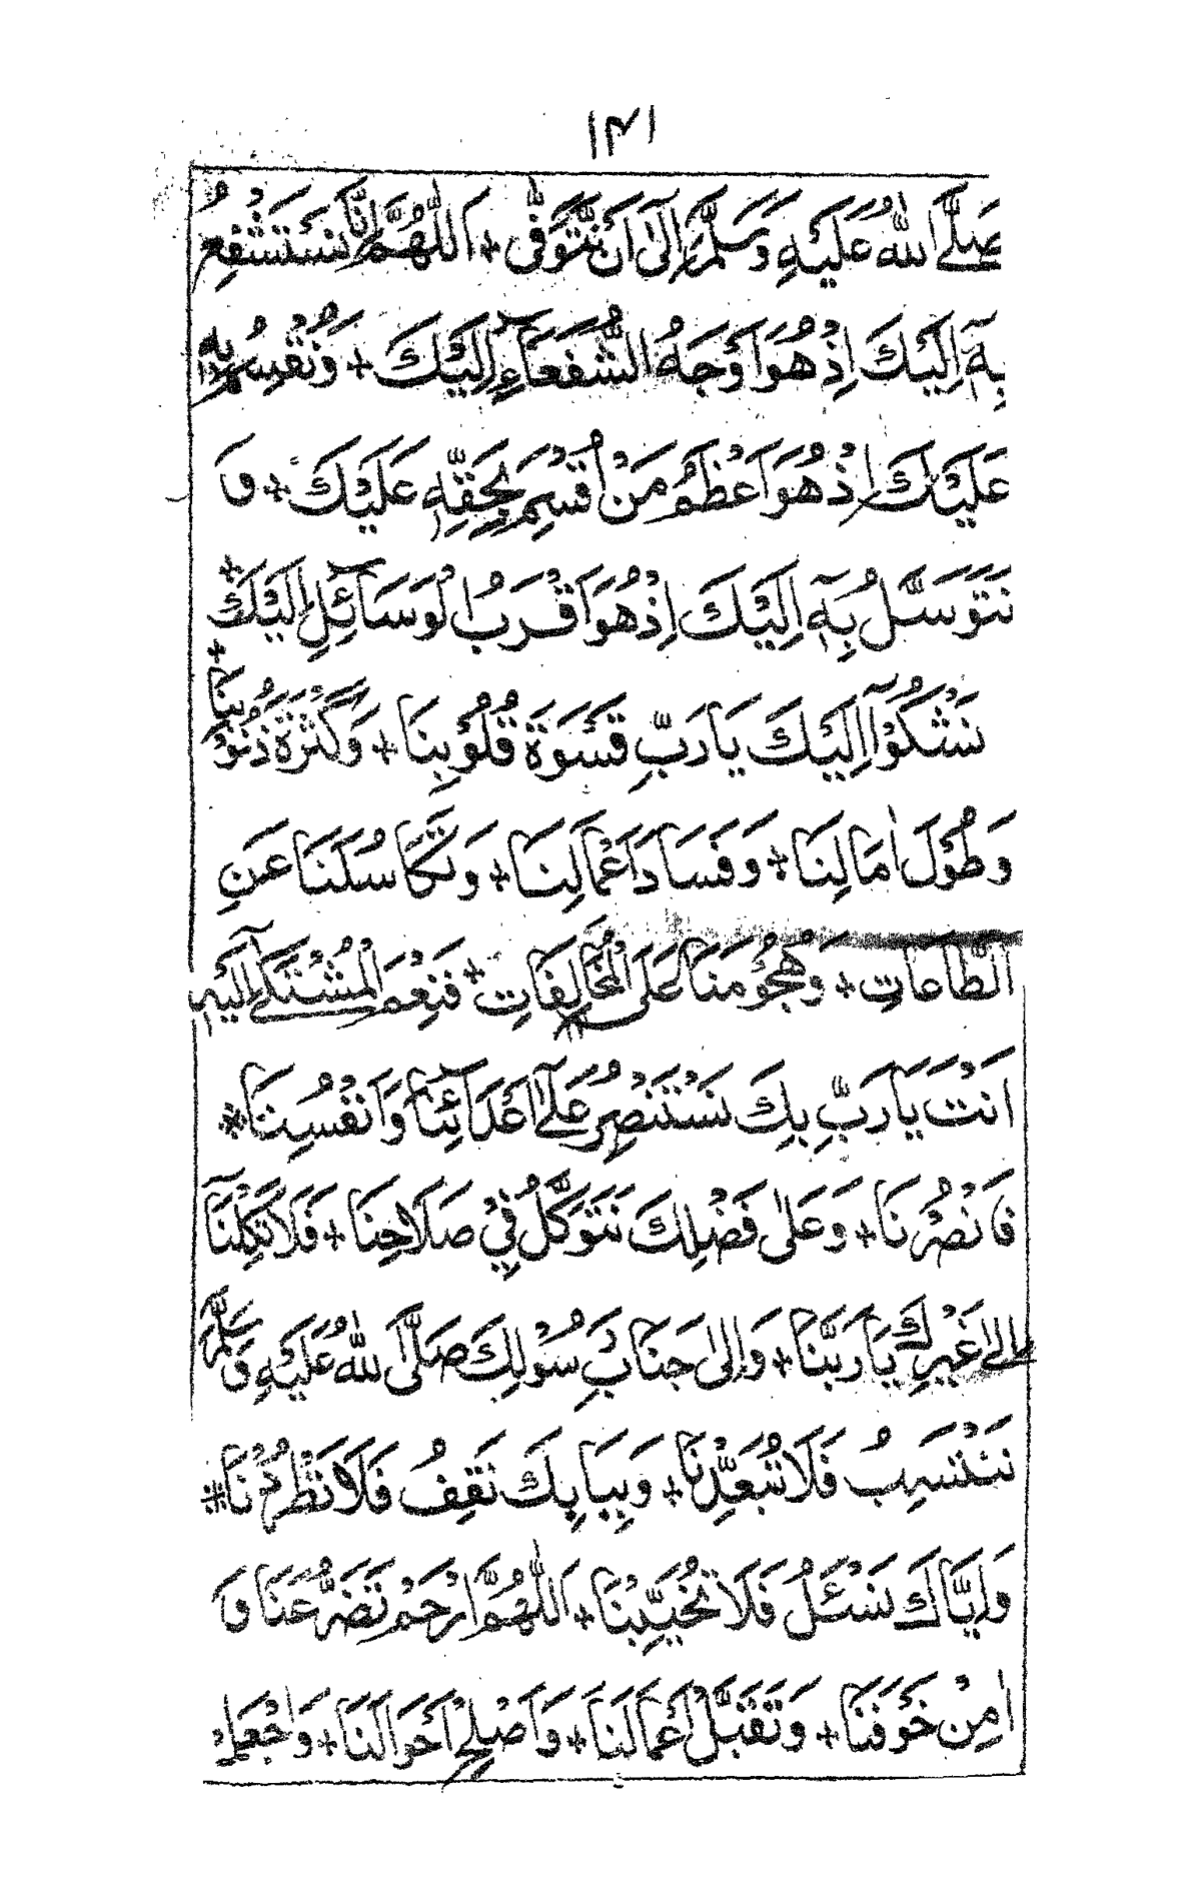 ۱۴۱
صَلَّى اللهُ عَلَيْهِ وَسَلَّمَ اِلٰى اَنْ نَتَوَفّٰى + اَللّٰهُمَّ اِنَّا نَسْتَشْفِعُ
بِهٖٓ اِلَيْكَ اِذْ هُوَ اَوْجَهُ الشُّفَعَآءِ اِلَيْكَ + وَنُقْسِمُ بِهٖ
عَلَيْكَ اِذْ هُوَ اَعْظَمُ مَنْ اُقْسِمَ بِحَقِّهٖ عَلَيْكَ + وَ
نَتَوَسَّلُ بِهٖٓ اِلَيْكَ اِذْ هُوَ اَقْرَبُ الْوَسَآئِلِ اِلَيْكَ +
نَشْكُوْٓا اِلَيْكَ يَا رَبِّ قَسْوَةَ قُلُوْبِنَا + وَكَثْرَةَ ذُنُوْبِنَا +
وَطُوْلَ اٰمَالِنَا + وَفَسَادَ اَعْمَالِنَا + وَتَكَاسُلَنَا عَنِ
الطَّاعَاتِ + وَهُجُوْمَنَا عَلَى الْمُخَالِفَاتِ + فَنِعْمَ الْمُشْتَكٰٓى اِلَيْهِ
اَنْتَ يَا رَبِّ بِكَ نَسْتَنْصِرُ عَلٰٓى اَعْدَآئِنَا وَاَنْفُسِنَا +
فَانْصُرْنَا + وَعَلٰى فَضْلِكَ نَتَوَكَّلُ فِيْ صَلَاحِنَا + فَلَا تَكِلْنَآ
اِلٰى غَيْرِكَ يَا رَبَّنَا + وَاِلٰى جَنَابِ رَسُوْلِكَ صَلَّى اللهُ عَلَيْهِ وَسَلَّمَ
نَنْتَسِبُ فَلَا تُبَعِّدْنَا + وَبِبَابِكَ نَقِفُ فَلَا تَطْرُدْنَا +
وَاِيَّاكَ نَسْئَلُ فَلَا تُخَيِّبْنَا + اَللّٰهُمَّ ارْحَمْ تَضَرُّعَنَا وَ
اٰمِنْ خَوْفَنَا + وَتَقَبَّلْ اَعْمَالَنَا + وَاَصْلِحْ اَحْوَالَنَا + وَاجْعَلْ